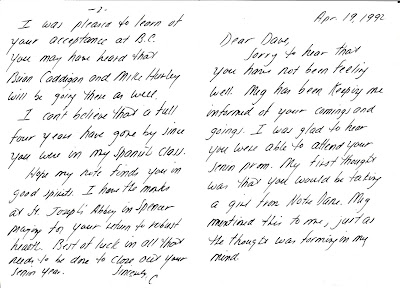 Apr. 19, 1992
Dear Dave,
Sorry to hear that
you have not been feeling
well. Meg has been keeping me
informed of your comings and
goings. I was glad to hear
you were able to attend your
senior prom. My first thought
was that you would be taking
a girl from Notre Dame. Meg
mentioned this to me, just as
the thought was forming in my
mind.
-2-
I was pleased to learn of
your acceptance at B.C.
You may have heard that
Brian Caddigan and Mike Hurley
will be going there as well.
I can't believe that a full
four years have gone by since
you were in my Spanish class.
Hope my note finds you in
good spirits. I have the monks
at St. Joseph's Abbey in Spencer
praying for your return to robust
health. Best of luck in all that
needs to be done to close out your
senior year. Sincerely,
C